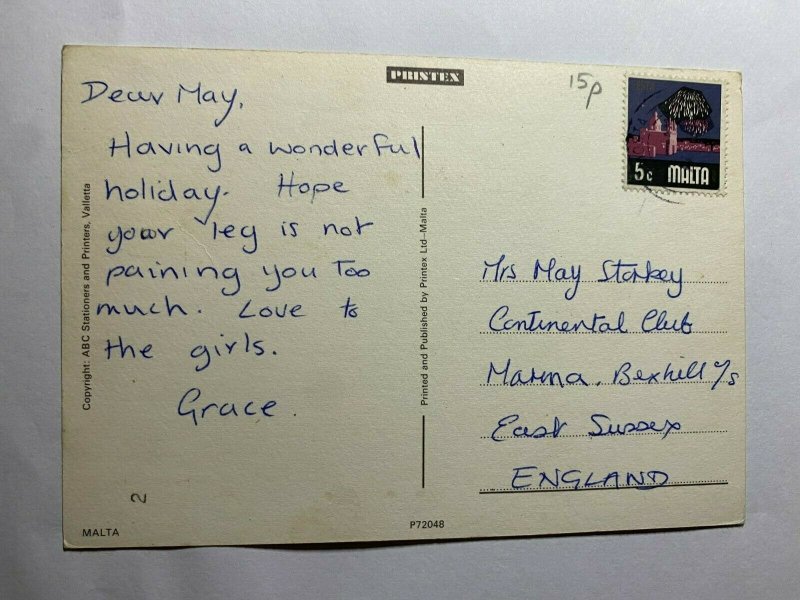 PRINTEX
15p
5c MALTA
Dear May,
Having a wonderful
holiday. Hope
your leg is not
paining you Too
much. Love to
the girls.
Grace.
Copyright: ABC Stationers and Printers, Valletta
Printed and Published by Printex Ltd—Malta
Mrs May Starkey
Continental Club
Marina, Bexhill o/s
East Sussex
ENGLAND
2
MALTA
P72048